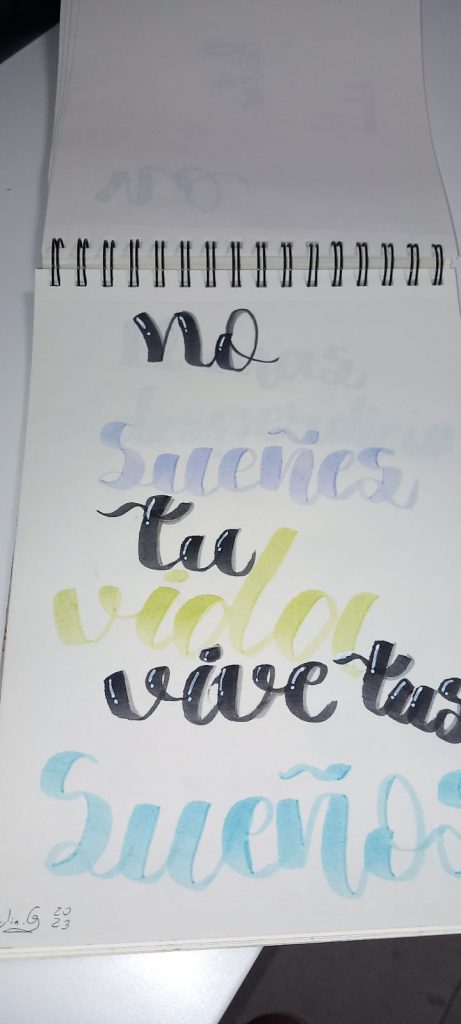 no
sueñes
tu
vida
vive tus
sueños
20
23